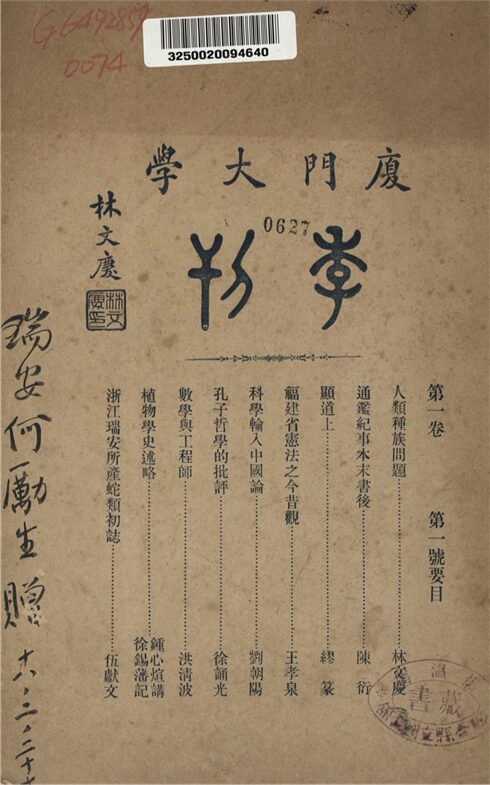 G649285
0074
3250020094640
廈門大學
0627
季刊
林文慶
林文慶印
第一卷 第一號要目
人類種族問題 林文慶
通鑑紀事本末書後 陳衍
顯道上 繆篆
福建省憲法之今昔觀 王孝泉
科學輸入中國論 劉朝陽
孔子哲學的批評 徐誦光
數學與工程師 洪清波
植物學史述略 鍾心煊講 徐錫藩記
浙江瑞安所產蛇類初誌 伍獻文
瑞安何勵生贈
藏書